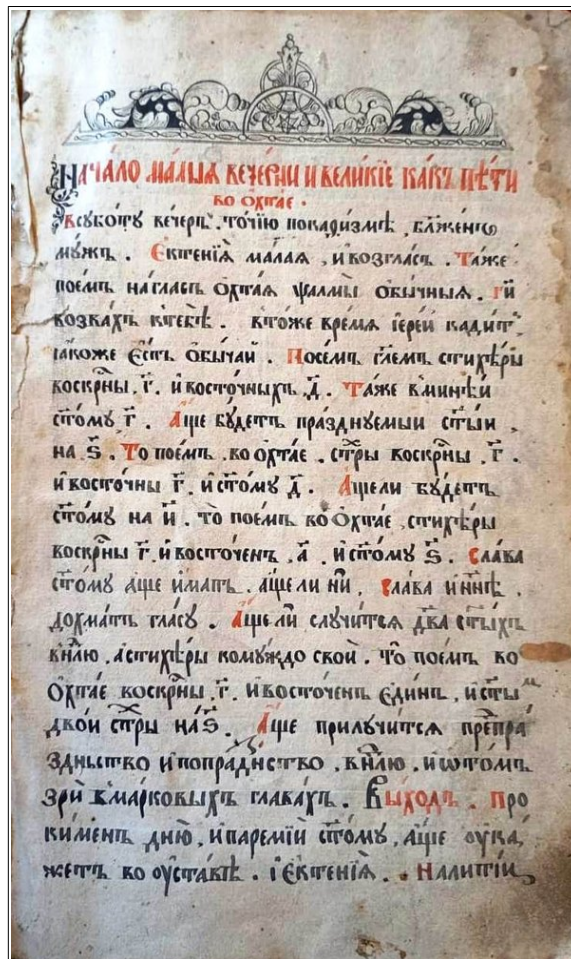 Нача́ло ма́лыѧ вече́рни и вели́кїе ка́къ пѣ́ти
во ѻхта́е .
В субо́ту ве́черъ . то́чїю по каѳи́змѣ , бл҃же́нъ
му́жъ . Єктенїѧ̀ ма́лаѧ , и҆ во́зглас . Та́же
пое́мъ на гла́съ ѻ҆хта́ѧ ѱалмы̀ ѻ҆бы́чныѧ . Гд҇и
воззва́хъ к тебѣ̀ . в то́же вре́мѧ і҆ере́й кади́тъ
ꙗ҆́коже є҆́сть ѻ҆бы́чай . По се́мъ гл҃емъ стихѣ́ры
воскр҇ны . г҃ . и҆ восто́чныхъ . д҃ . Та́же в мине́и
ст҃о́му г҃ . А҆́ще бу́детъ пра́зднуемыи ст҃ы́и ,
на ѕ҃ . То пое́мъ , во ѻ҆хта́е . ст҇ры воскр҇ны . г҃ .
и҆ восто́чны г҃ . и҆ ст҃о́му д҃ . А҆́ще ли бу́детъ
ст҃о́му на и҃ . то пое́мъ во ѻ҆хта́е , стихѣ́ры
воскр҇ны г҃ . и҆ восто́ченъ , а҃ . и҆ ст҃о́му ѕ҃ . Сла́ва
ст҃о́му а҆́ще и҆́мать . а҆́ще ли нѝ , Сла́ва и҆ нн҃ѣ ,
до́хматъ гла́су . А҆́ще ли случи́тсѧ два̀ ст҃ы́хъ
в нл҇ю , а҆ стихѣ́ры кому́ждо своѝ . То пое́мъ во
ѻ҆хта́е воскр҇ны . г҃ . и҆ восто́ченъ є҆ди́нъ , и҆ ст҃ы́м
двоѝ ст҇ры на ѕ҃ . А҆́ще прилучи́тсѧ пре́пра
здньство и҆ попра́днство , в нл҇ю , и҆ ѡ҆ то́мъ
зрѝ в ма́рковыхъ глава́хъ . Вы́ходъ . Про
ки́менъ дню̀ , и҆ пареми́и ст҃о́му , а҆́ще ѹ҆ка́
жетъ во ѹ҆ста́вѣ . і҆ єктенїѧ̀ . На лити́и